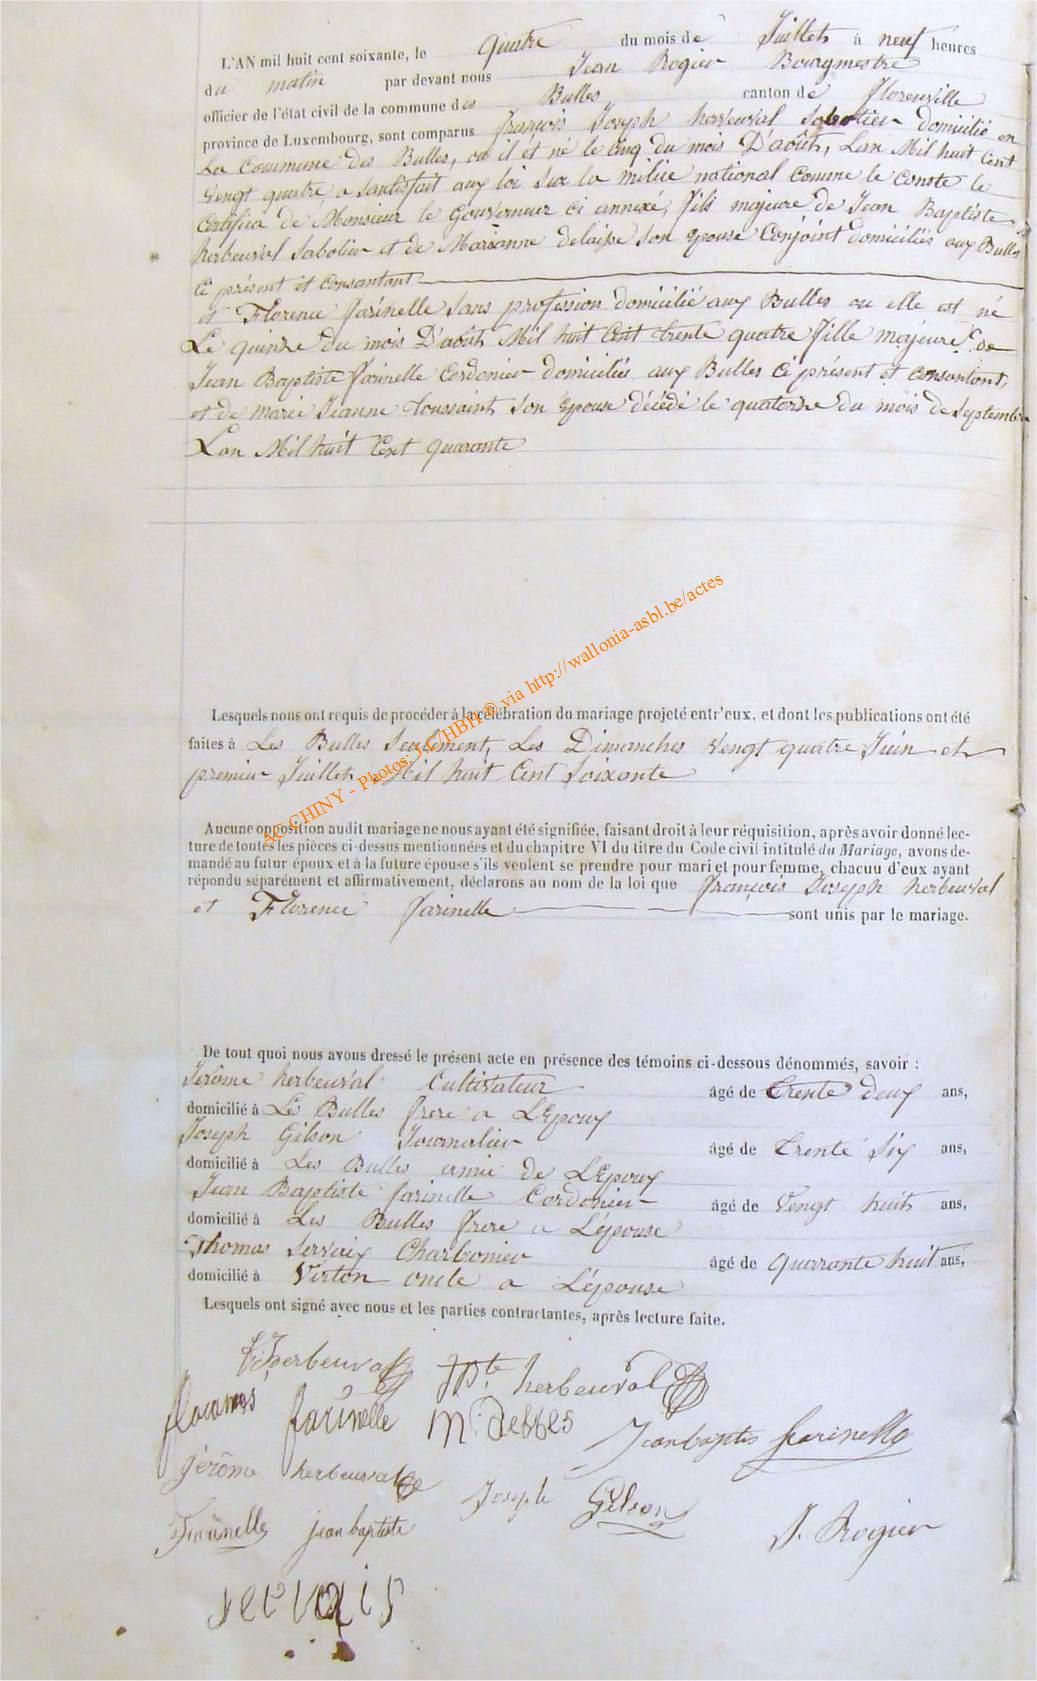 L'AN mil huit cent soixante, le quatre du mois de Juillet à neuf heures
du matin par devant nous Jean Rogier Bourgmestre
officier de l'état civil de la commune des Bulles canton de Florenville
province de Luxembourg, sont comparus François Joseph herbeuval Sabotier domicilié en
La Commune des Bulles, ou il et né le cinq du mois D'août, Lan Mil huit Cent
Vengt quatre, a Santisfait aux loi Sur la milice national comme le Conste le
Certifica de Monsieur le Gouverneur ci annexé, fils majeure de Jean Baptiste
herbeuval Sabotier et de Marianne delaisse Son Epouse Conjoint domiciliés aux Bulles
Ci présent et Consantant
et Florence farinelle Sans profession domicilié aux Bulles ou elle est né
Le quinze du mois D'août Mil huit Cent trente quatre fille majeure de
Jean Baptiste farinelle Cordonier domiciliés aux Bulles Ci présent et Consantant,
et de marie Jeanne toussaint Son Epouse décédé le quatorze du mois de Septembre
Lan Mil huit Cent quarante
Lesquels nous ont requis de procéder à la célébration du mariage projeté entr'eux, et dont les publications ont été
faites à Les Bulles Seulement, Les Dimanches Vengt quatre Juin et
premier Juillet Mil huit Cent Soixante
AC CHINY - Photos: J.C/HBH® via http://wallonia-asbl.be/actes
Aucune opposition audit mariage ne nous ayant été signifiée, faisant droit à leur réquisition, après avoir donné lec-
ture de toutes les pièces ci-dessus mentionnées et du chapitre VI du titre du Code civil intitulé du Mariage, avons de-
mandé au futur époux et à la future épouse s'ils veulent se prendre pour mari et pour femme, chacuu d'eux ayant
répondu séparément et affirmativement, déclarons au nom de la loi que françois Joseph herbeuval
et Florence farinelle sont unis par le mariage.
De tout quoi nous avons dressé le présent acte en présence des témoins ci-dessous dénommés, savoir :
Jerôme herbeuval Cultivateur âgé de trente deux ans,
domicilié à Les Bulles frere a L'Epoux
Joseph Gilson Journalier âgé de trente Six ans,
domicilié à Les Bulles amie de L'Epoux
Jean Baptiste farinelle Cordonier âgé de Vengt huit ans,
domicilié à Les Bulles frere a L'épouse
Thomas Servaix Charbonier âgé de quarante huit ans,
domicilié à Virton oncle a L'épouse
Lesquels ont signé avec nous et les parties contractantes, après lecture faite.
herbeuval JBte herbeuval
farinelle Jean baptis farinelle
jérôme herbeuval Joseph Gilson
farinelle jean baptiste J. Rogier
servais